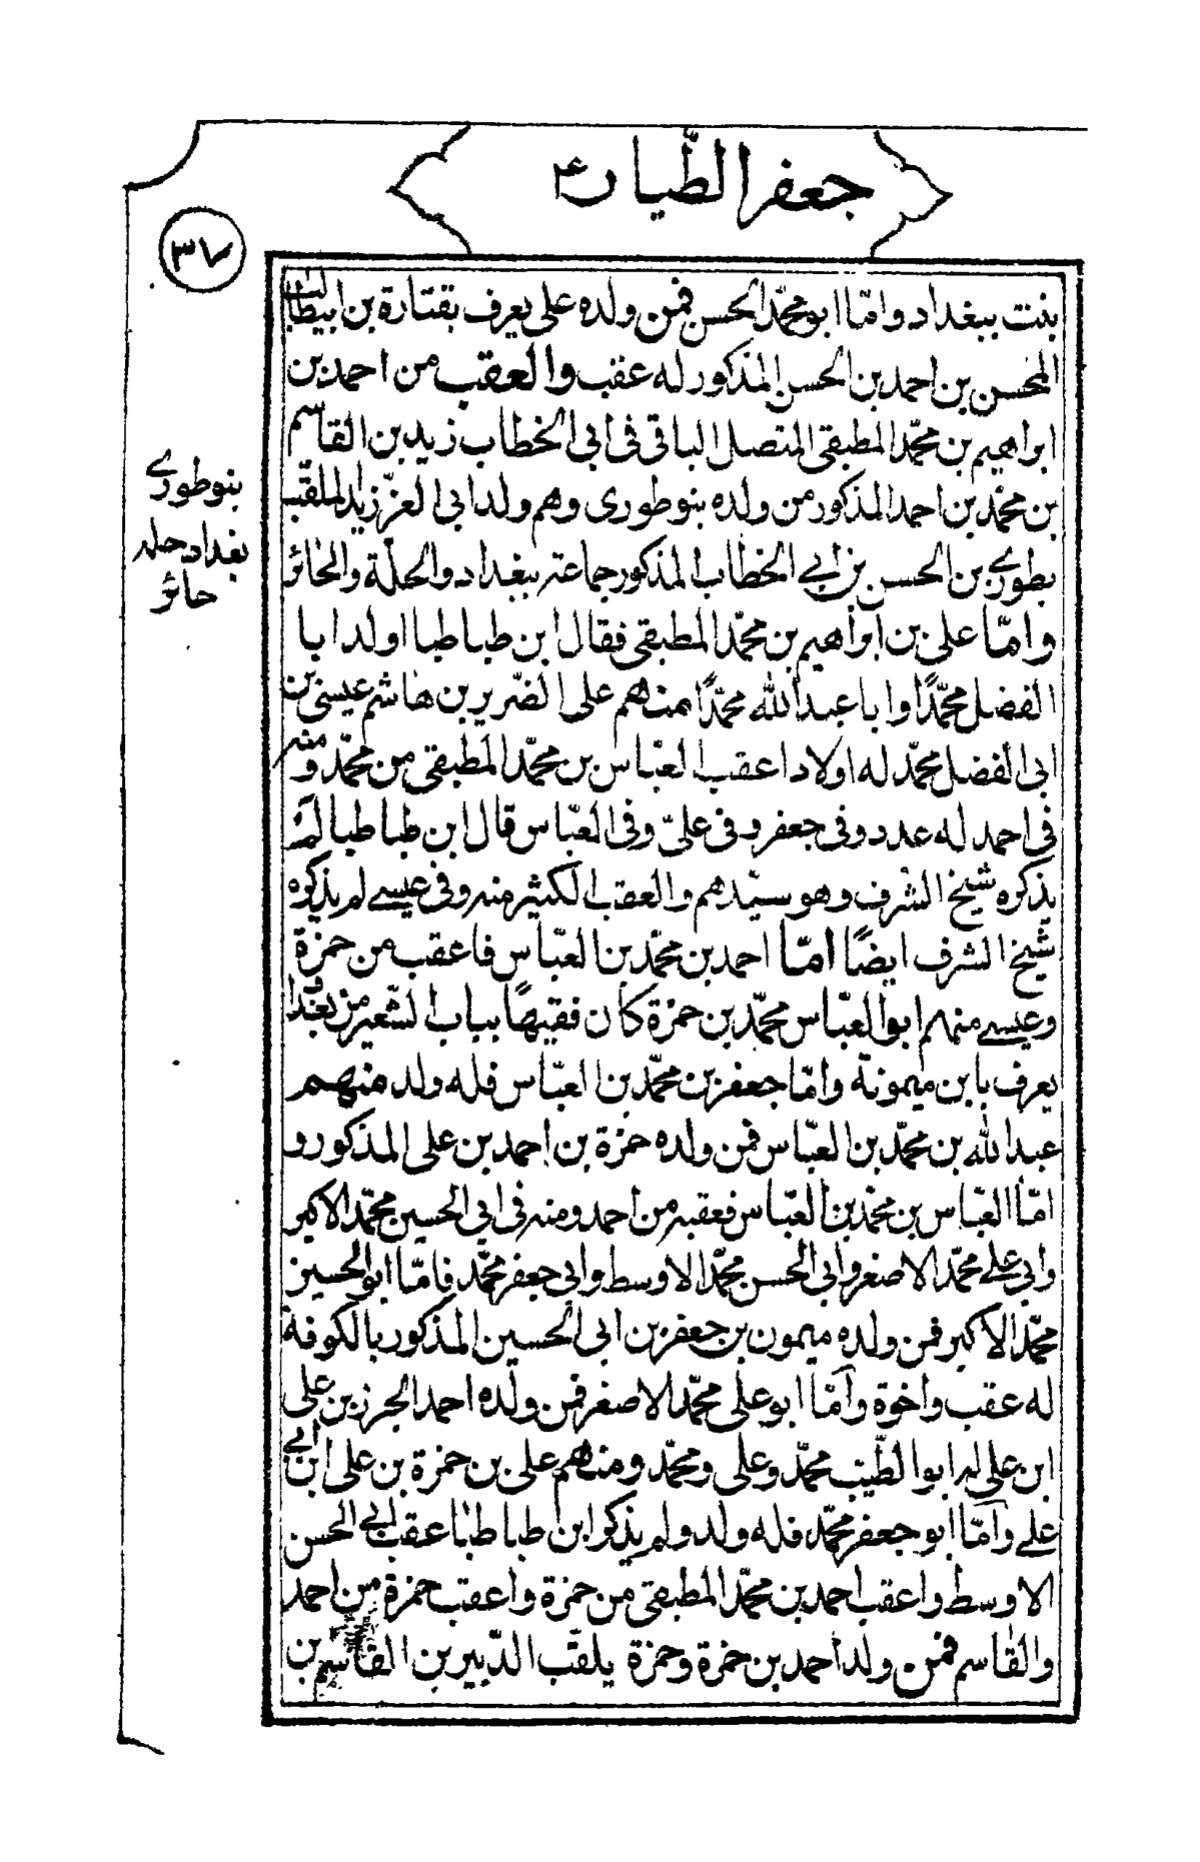 جعفر الطّيار ع
٣٧
بنت ببغداد وامّا ابو محمّد الحسن فمن ولده على يعرف بقتارة بن ابيطالب
المحسن بن احمد بن الحسن المذكور له عقب والعقب من احمد بن
ابراهيم بن محمّد المطبقى المتصل الباقى فى ابى الخطاب زيد بن القاسم
بن محمّد بن احمد المذكور من ولده بنو طورى وهم ولد ابى العزّ زيد الملقب
بطورے بن الحسن بن ابے الخطاب المذكور جماعة ببغداد والحلّة والحائر
وامّا على بن ابراهيم بن محمّد المطبقى فقال ابن طباطبا اولد ابا
الفضل محمّدًا وابا عبد الله محمّدًا منهم على الضّرير بن هاشم عيسى بن
ابى الفضل محمّد له اولاد اعقب العبّاس بن محمّد المطبقى من محمّد ومنه
فى احمد له عدد وفى جعفر وفى علىّ وفى العبّاس قال ابن طباطبا لم
يذكره شيخ الشرف وهو سيّدهم والعقب الكثير منه وفى عيسے لم يذكره
شيخ الشرف ايضًا امّا احمد بن محمّد بن العبّاس فاعقب من حمزة
وعيسے منهم ابو العبّاس محمّد بن حمزة كان فقيهًا بباب الشّعير من بغداد
يعرف بابن ميمونة وامّا جعفر بن محمّد بن العبّاس فله ولد منهم
عبد الله بن محمّد بن العبّاس فمن ولده حمزة بن احمد بن على المذكور و
امّا العبّاس بن محمّد بن العبّاس فعقبه من احمد ومنه فى ابى الحسين محمّد الاكبر
وابى علے محمّد الاصغر وابى الحسن محمّد الاوسط وابى جعفر محمّد فامّا ابو الحسين
محمّد الاكبر فمن ولده ميمون بن جعفر بن ابى الحسين المذكور بالكوفة
له عقب واخوة وامّا ابو على محمّد الاصغر فمن ولده احمد الجرز بن على
ابن على له ابو الطّيب محمّد وعلى ومحمّد ومنهم على بن حمزة بن على ابن ابے
علے وامّا ابو جعفر محمّد فله ولد ولم يذكر ابن طباطبا عقب ابے الحسن
الاوسط واعقب احمد بن محمّد المطبقى من حمزة واعقب حمزة من احمد
والقاسم فمن ولد احمد بن حمزة وحمزة يلقب الدّبير بن القاسم بن
بنو طورے
بغداد حله
حائر